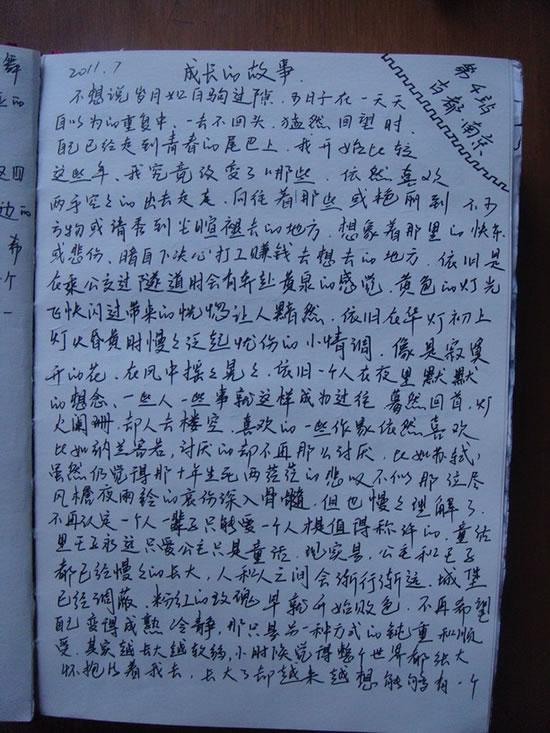 舞
的
回
边的
布
个
一
2011.7
成长的故事.
第4站
古都·南京
不想说岁月如白驹过隙.日子在一天天
自以为的重复中.一去不回头.猛然回望时.
自己已经走到青春的尾巴上.我开始比较
这些年.我究竟改变了哪些.依然喜欢
两手空々的出去走走.向往着那些或艳丽到不可
方物或清香到尘喧褪去的地方.想象着那里的快乐
或悲伤.暗自下决心打工赚钱去想去的地方.依旧是
在乘公交过隧道时会有奔赴黄泉的感觉.黄色的灯光
飞快闪过带来的恍惚让人黯然.依旧在华灯初上
灯火昏黄时慢々泛起忧伤的小情调.像是寂寞
开的花.在风中摆々晃々.依旧一个人在夜里默默
的想念.一些人一些事就这样成为过往.蓦然回首.灯
火阑珊.却人去楼空.喜欢的一些作家依然喜欢
比如纳兰容若.讨厌的却不再那么讨厌.比如苏轼;
虽然仍觉得那十年生死两茫茫的悲叹不似那位尽
风檐夜雨铃的哀伤深入骨髓.但也慢々理解了.
不再认定一个人一辈子只能爱一个人棋值得称许的.童话
里王子永远只爱公主只是童话.现实是.公主和王子
都已经慢々的长大,人和人之间会渐行渐远.城堡
已经凋蔽.粉红的玫瑰早就开始败色.不再希望
自己变得成熟冷静,那只是另一种方式的钝重和顺
受.其实越长大越软弱,小时候觉得整个世界都张大
怀抱给着我去,长大了却越来越想能够有一个